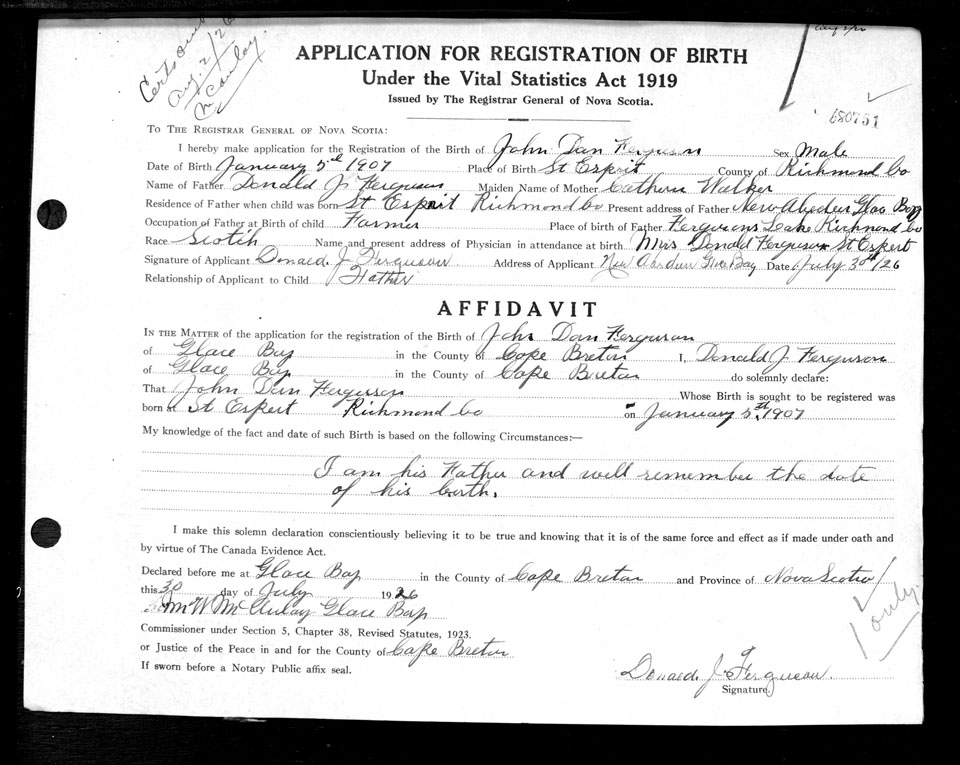 Aug. 2/26
McAulay.
680751
APPLICATION FOR REGISTRATION OF BIRTH
Under the Vital Statistics Act 1919
Issued by The Registrar General of Nova Scotia.
TO THE REGISTRAR GENERAL OF NOVA SCOTIA:
I hereby make application for the Registration of the Birth of John Dan Ferguson Sex Male
Date of Birth January 5th 1907 Place of Birth St Esprit County of Richmond Co
Name of Father Donald J. Ferguson Maiden Name of Mother Cathern Walker
Residence of Father when child was born St Esprit Richmond co Present address of Father New Abedur Glac Bay
Occupation of Father at Birth of child Farmer Place of birth of Father Fergusons Leake Richmond co
Race Scotih Name and present address of Physician in attendance at birth. Mrs Donald Ferguson St Espert
Signature of Applicant Donald J Ferguson Address of Applicant New Glace Bay Date July 30th/26
Relationship of Applicant to Child Father
AFFIDAVIT
IN THE MATTER of the application for the registration of the Birth of John Dan Ferguson
of Glace Bay in the County of Cape Breton I, Donald J. Ferguson
of Glace Bay in the County of Cape Breton do solemnly declare:
That John Dan Ferguson Whose Birth is sought to be registered was
born at St Espert Richmond co on January 5th 1907
My knowledge of the fact and date of such Birth is based on the following Circumstances:—
I am his Father and well remember the date
of his birth.
I make this solemn declaration conscientiously believing it to be true and knowing that it is of the same force and effect as if made under oath and
by virtue of The Canada Evidence Act.
Declared before me at Glace Bay in the County of Cape Breton and Province of Nova Scotia
this 30 day of July 1926
M W McAulay Glace Bay
Commissioner under Section 5, Chapter 38, Revised Statutes, 1923.
or Justice of the Peace in and for the County of Cape Breton
If sworn before a Notary Public affix seal.
only
Donald J Ferguson
Signature